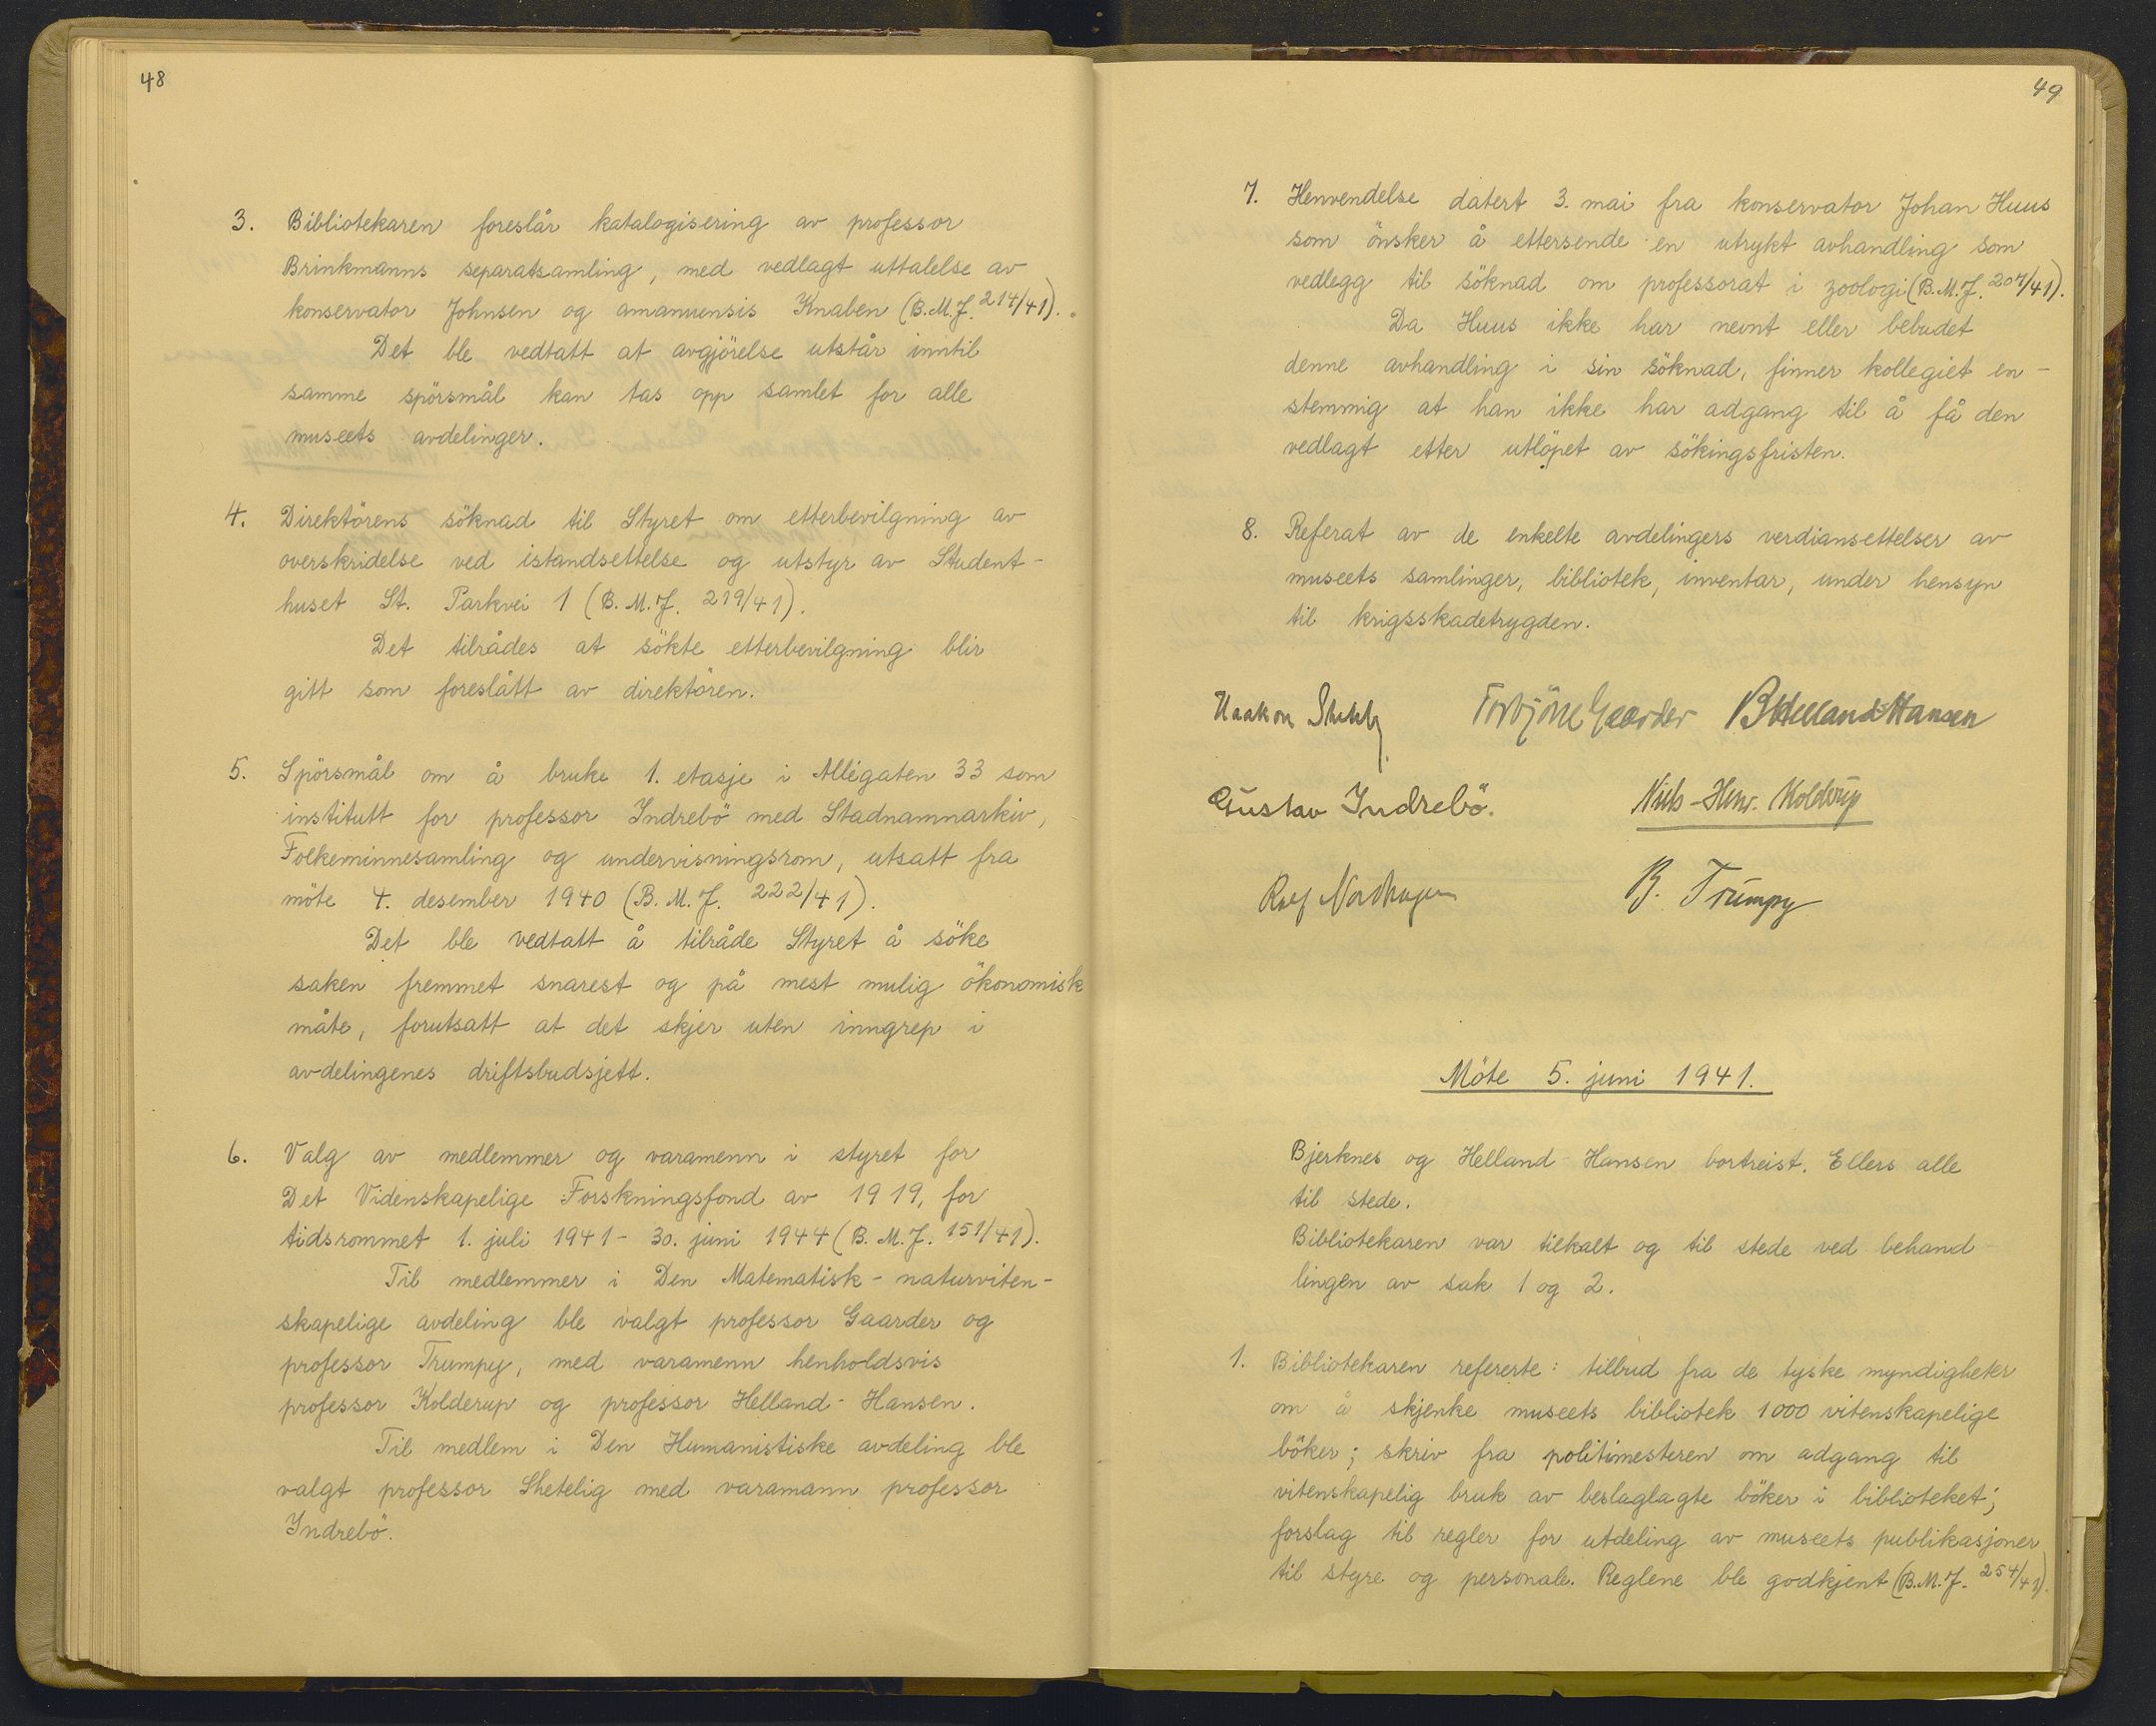 48
3. Bibliotekaren foreslår katalogisering av professor
Brinkmanns separatsamling, med vedlagt uttalelse av
konservator Johnsen og amanuensis Knaben (B.M.J. 214/41).
Det ble vedtatt at avgjörelse utstår inntil
samme spörsmål kan tas opp samlet for alle
museets avdelinger.
4. Direktörens söknad til Styret om etterbevilgning av
overskridelse ved istandsettelse og utstyr av Student-
huset St. Parkvei 1 (B.M.J. 219/41).
Det tilrådes at sökte etterbevilgning blir
gitt som foreslått av direktören.
5. Spörsmål om å bruke 1. etasje i Allégaten 33 som
institutt for professor Indrebö med Stadnamnarkiv,
Folkeminnesamling og undervisningsrom, utsatt fra
möte 4. desember 1940 (B.M.J. 222/41).
Det ble vedtatt å tilråde Styret å söke
saken fremmet snarest og på mest mulig ökonomisk
måte, forutsatt at det skjer uten inngrep i
avdelingenes driftsbudsjett.
6. Valg av medlemmer og varamenn i styret for
Det Videnskapelige Forskningsfond av 1919, for
tidsrommet 1. juli 1941 - 30. juni 1944 (B.M.J. 151/41).
Til medlemmer i Den Matematisk-naturviten-
skapelige avdeling ble valgt professor Gaarder og
professor Trumpy, med varamenn henholdsvis
professor Kolderup og professor Helland-Hansen.
Til medlem i Den Humanistiske avdeling ble
valgt professor Shetelig med varamann professor
Indrebö.
49
7. Henvendelse datert 3. mai fra konservator Johan Huus
som önsker å ettersende en utrykt avhandling som
vedlegg til söknad om professorat i zoologi (B.M.J. 207/41).
Da Huus ikke har nevnt eller bebudet
denne avhandling i sin söknad, finner kollegiet en-
stemmig at han ikke har adgang til å få den
vedlagt etter utlöpet av sökingsfristen.
8. Referat av de enkelte avdelingers verdiansettelser av
museets samlinger, bibliotek, inventar, under hensyn
til krigsskadetrygden.
Haakon Shetelig Torbjörn Gaarder B Helland-Hansen
Gustav Indrebö. Niels-Henr. Kolderup
Rolf Nordhagen B. Trumpy
Möte 5. juni 1941.
Bjerknes og Helland-Hansen bortreist. Ellers alle
til stede.
Bibliotekaren var tilkalt og til stede ved behand-
lingen av sak 1 og 2.
1. Bibliotekaren refererte: tilbud fra de tyske myndigheter
om å skjenke museets bibliotek 1000 vitenskapelige
böker; skriv fra politimesteren om adgang til
vitenskapelig bruk av beslaglagte böker i biblioteket;
forslag til regler for utdeling av museets publikasjoner
til styre og personale. Reglene ble godkjent (B.M.J. 254/41).